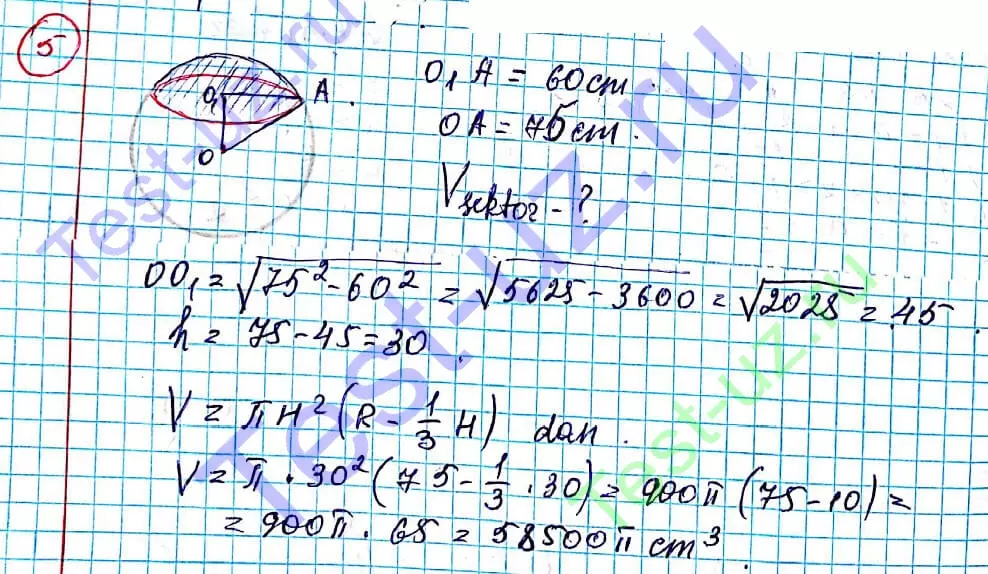 5
O₁ A
O
O₁A = 60cm.
OA = 75cm.
Vsektor - ?
OO₁ = √75² - 60² = √5625 - 3600 = √2025 = 45.
h = 75 - 45 = 30.
V = πH²(R - 1/3 H) dan.
V = π · 30² (75 - 1/3 · 30) = 900π (75 - 10) =
= 900π · 65 = 58500π cm³
Test-uz.ru
Test-uz.ru
Test-uz.ru